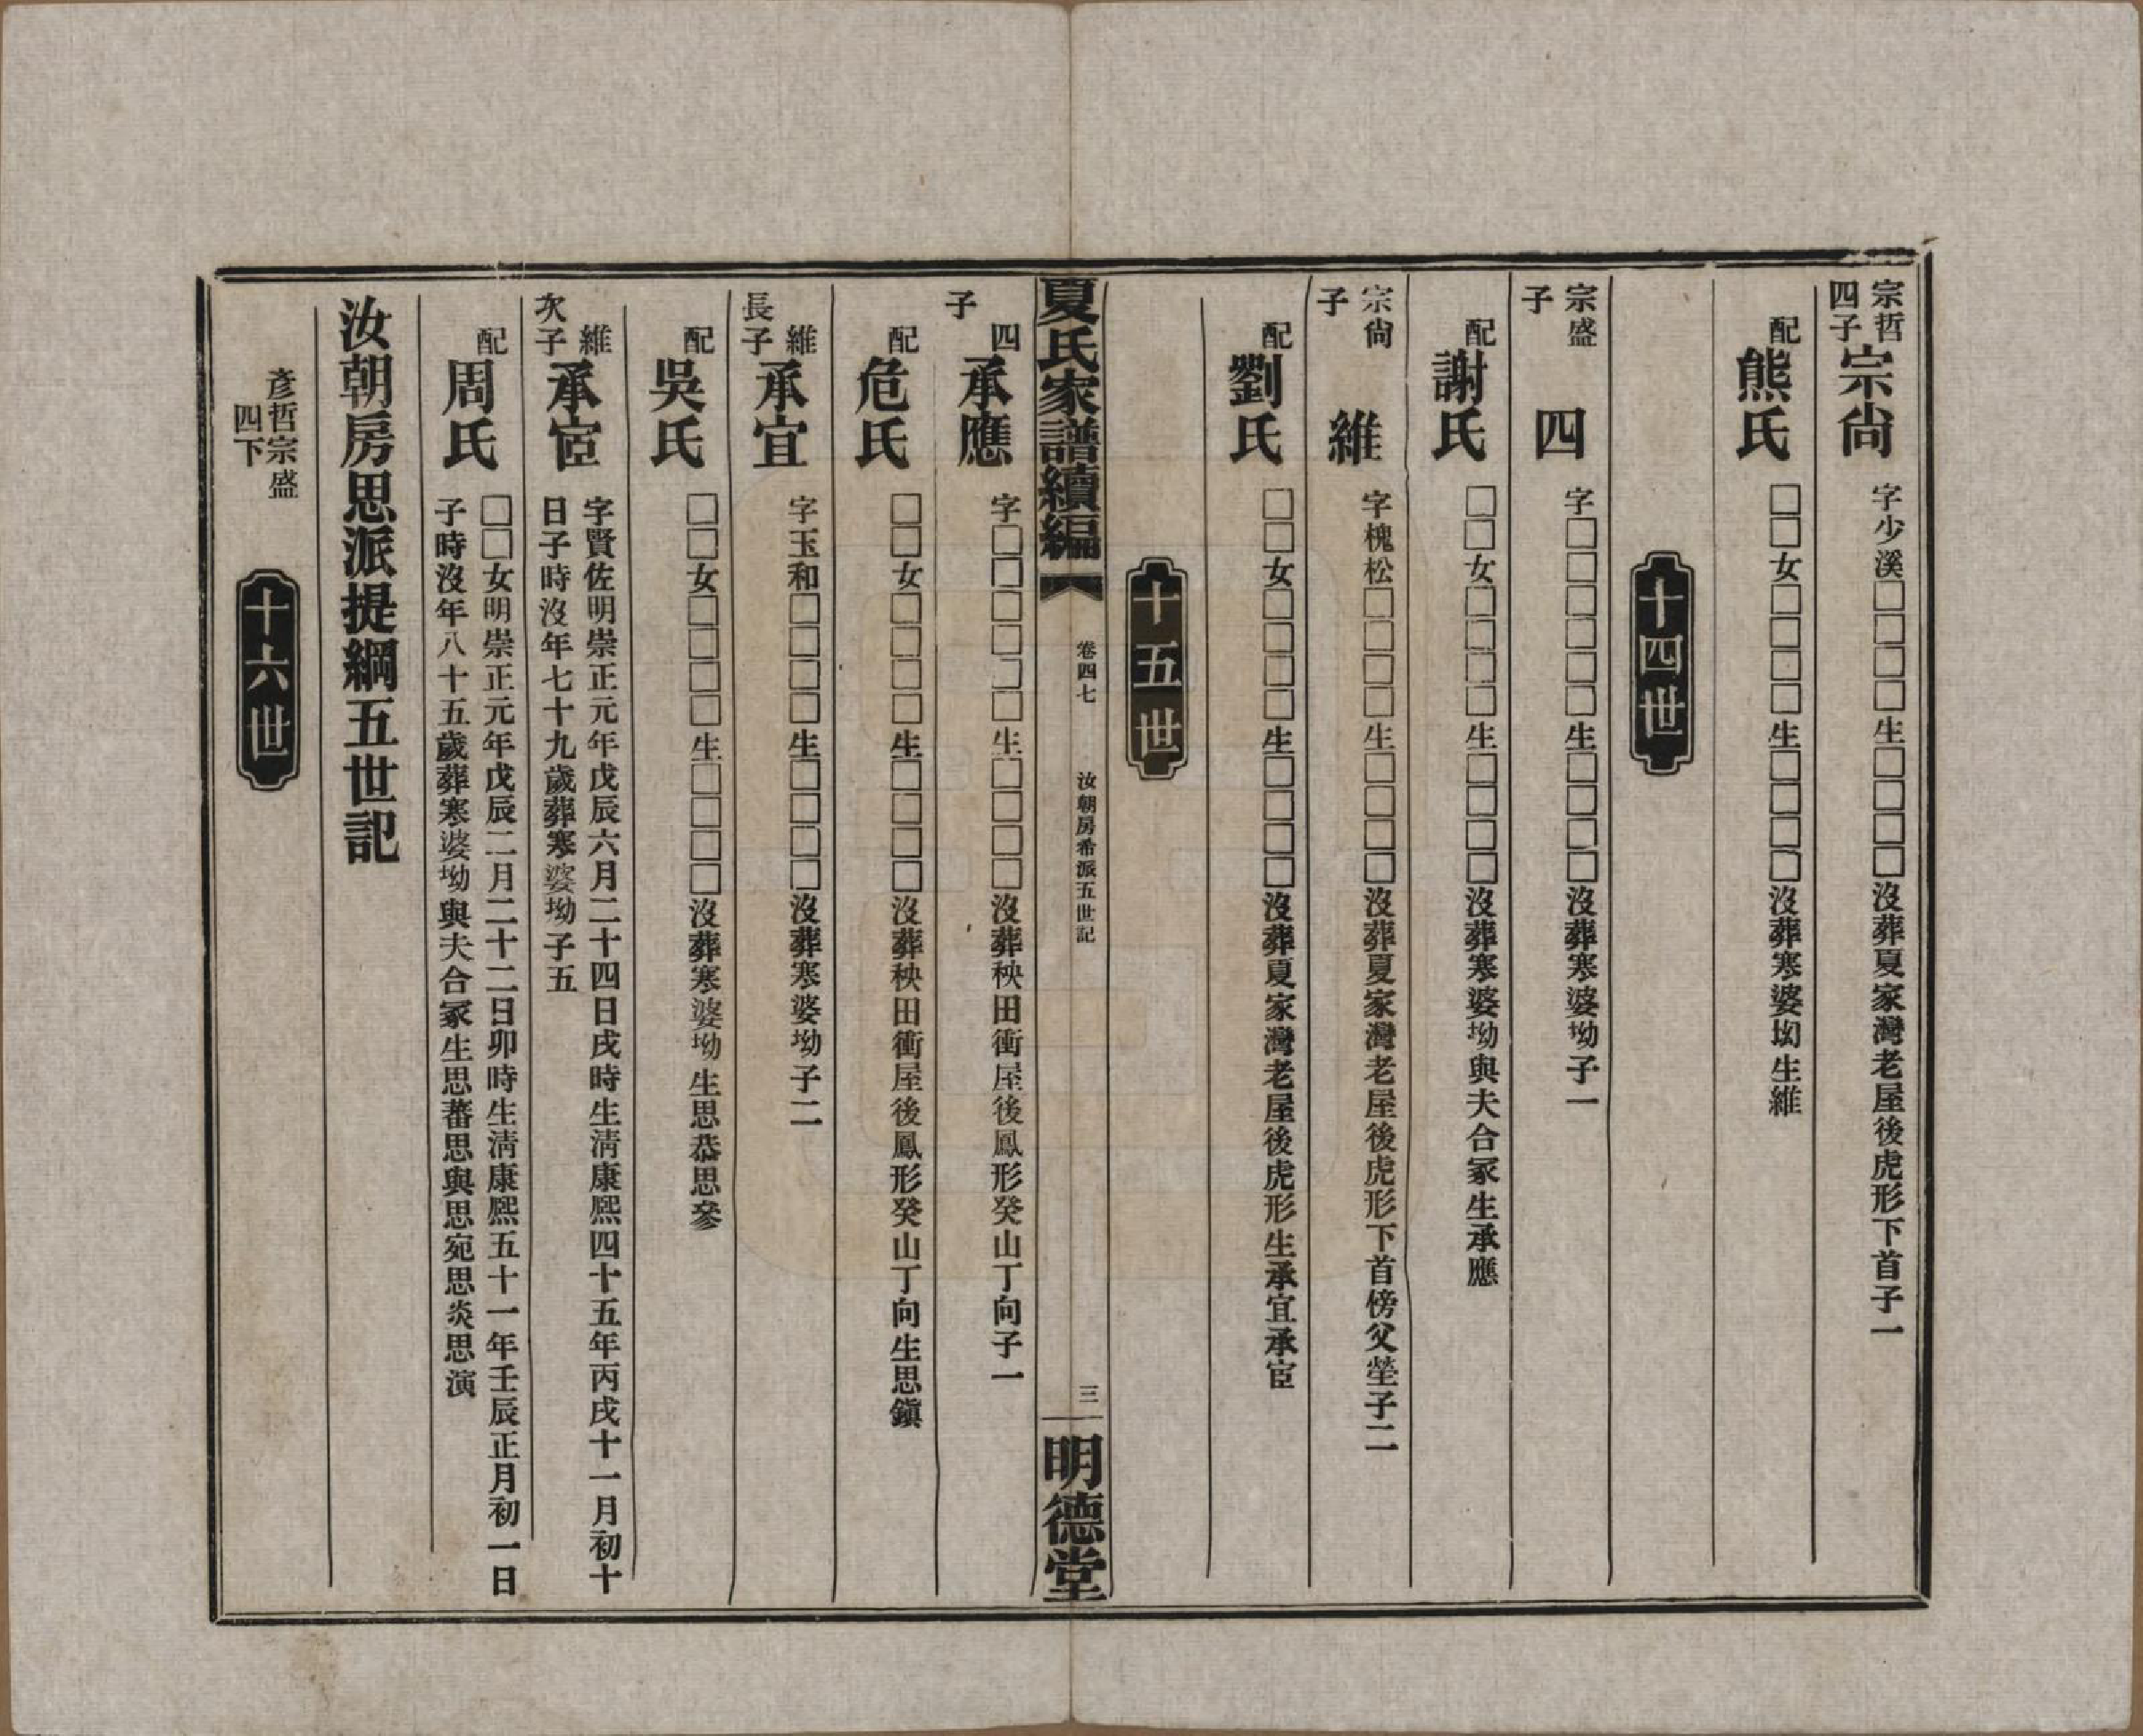 宗哲四子宗尙字少溪□□□□生□□□□沒葬夏家灣老屋後虎形下首子一
配熊氏□□女□□□□生□□□□沒葬寒婆㘭生維
十四世
宗盛子四字□□□□□□生□□□□沒葬寒婆坳子一
配謝氏□□女□□□□生□□□□沒葬寒婆坳與夫合冢生承應
宗尙子維字槐松□□□□生□□□□沒葬夏家灣老屋後虎形下首傍父塋子二
配劉氏□□女□□□□生□□□□沒葬夏家灣老屋後虎形生承宜承宦
十五世
夏氏家譜續編
卷四七
汝朝房希派五世記
三
明德堂
四子承應字□□□□□□生□□□□沒葬秧田衝屋後鳳形癸山丁向子一
配危氏□□女□□□□生□□□□沒葬秧田衝屋後鳳形癸山丁向生思鎭
維長子承宜字玉和□□□□生□□□□沒葬寒婆坳子二
配吳氏□□女□□□□生□□□□沒葬寒婆坳生思恭思參
維次子承宦字賢佐明崇正元年戊辰六月二十四日戌時生淸康熙四十五年丙戌十一月初十
日子時沒年七十九歲葬寒婆坳子五
配周氏□□女明崇正元年戊辰二月二十二日卯時生淸康熙五十一年壬辰正月初一日
子時沒年八十五歲葬寒婆坳與夫合冢生思蕃思與思宛思炎思演
汝朝房思派提綱五世記
彥哲宗盛
四下
十六世